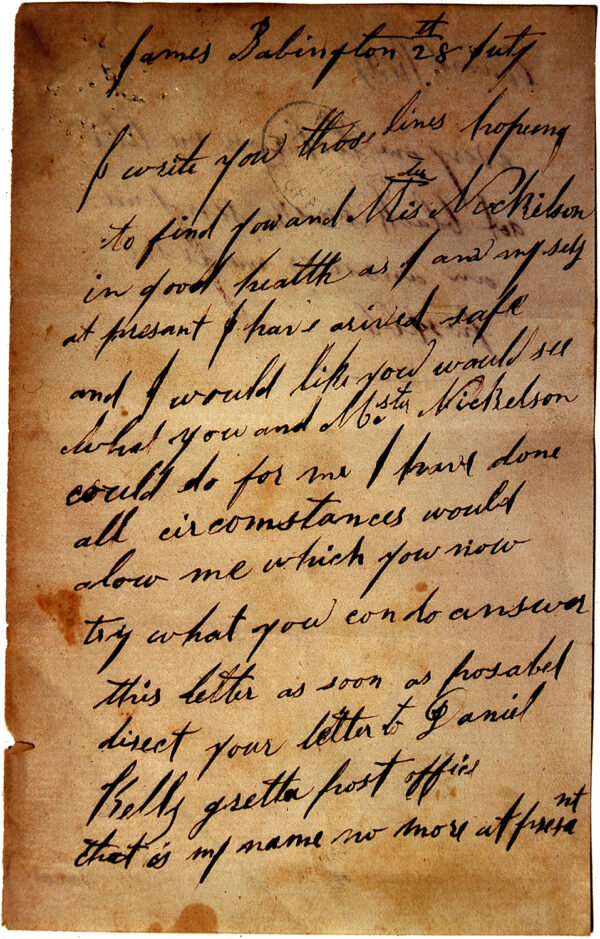 James Babington 28th July
I write you those lines hopeing
to find you and Mister Nickelson
in good health as I am my self
at presant I have arived safe
and I would like you would see
what you and Mister Nickelson
could do for me I have done
all circomstances would
alow me which you now
try what you con do answer
this letter as soon as posabel
direct your letter to Daniel
Kelly gretta post office
that is my name no more at presant